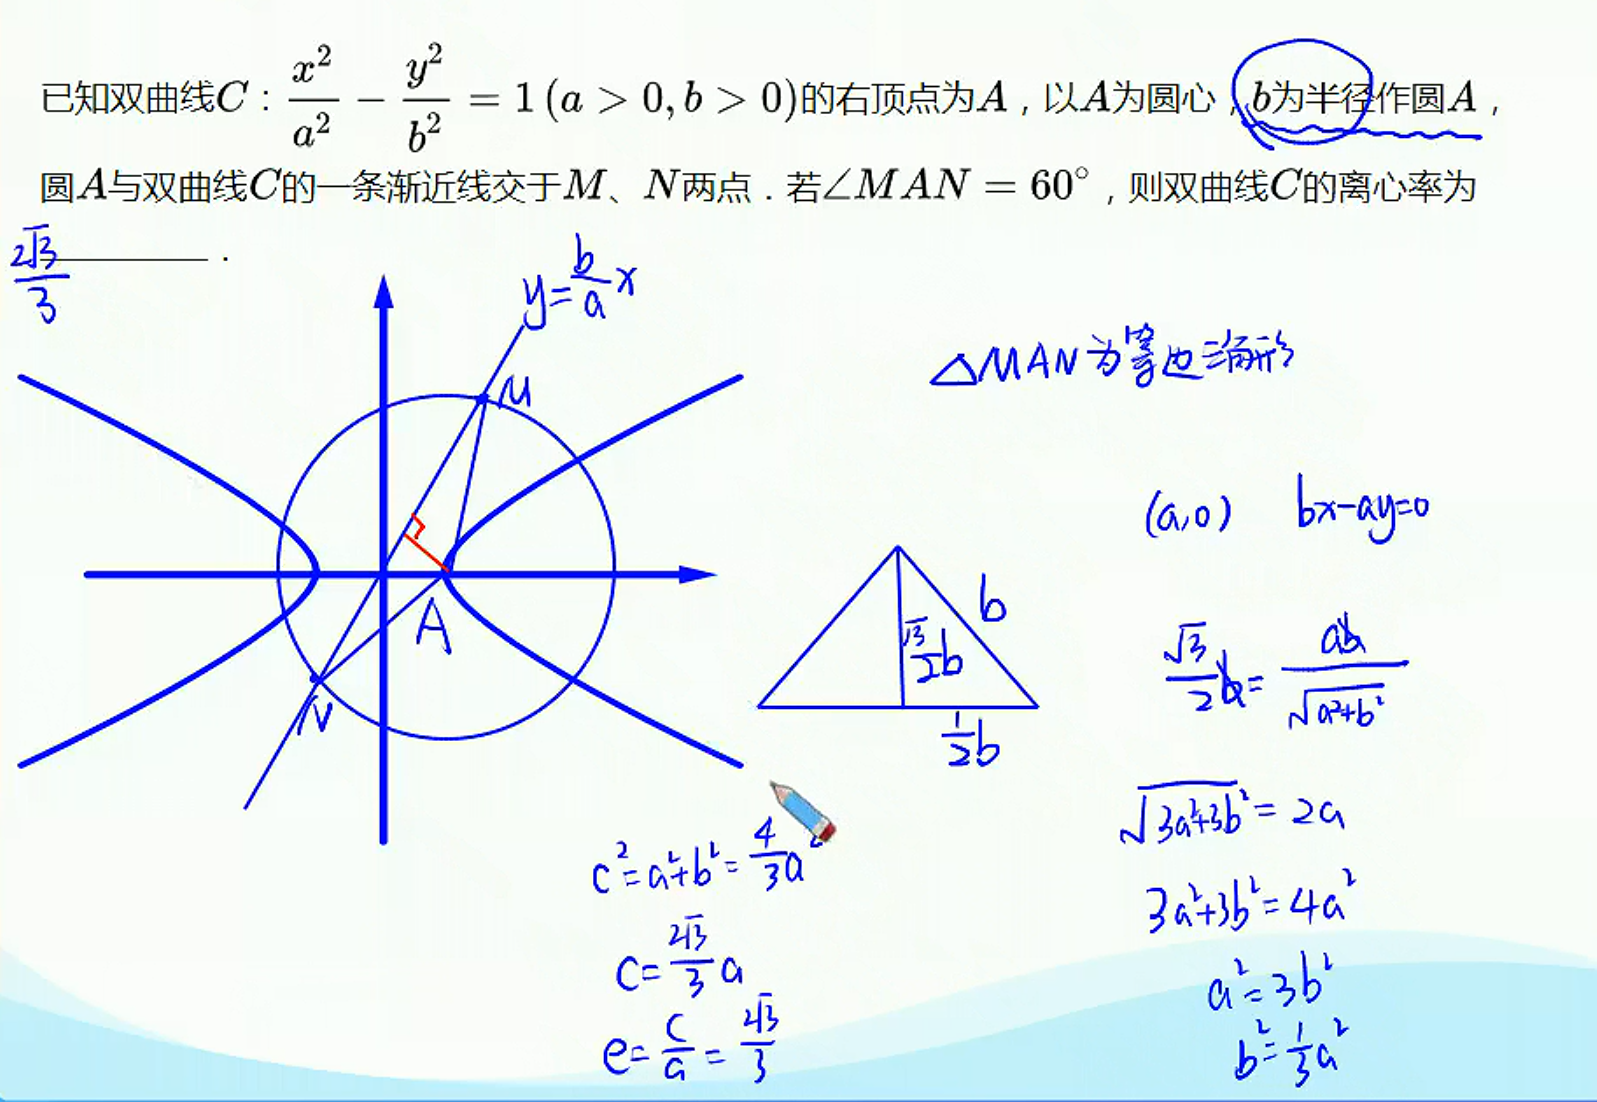 已知双曲线C：x²/a² − y²/b² = 1 (a > 0, b > 0)的右顶点为A，以A为圆心，b为半径作圆A，
圆A与双曲线C的一条渐近线交于M、N两点．若∠MAN = 60°，则双曲线C的离心率为
________．
2√3/3
y=b/a x
M
A
N
△MAN为等边三角形
(a,0) bx-ay=0
b
√3/2 b
1/2 b
√3/2 b = ab/√(a²+b²)
√(3a²+3b²) = 2a
3a²+3b²=4a²
a²=3b²
b²=1/3 a²
c²=a²+b²=4/3 a²
c=2√3/3 a
e=c/a=2√3/3